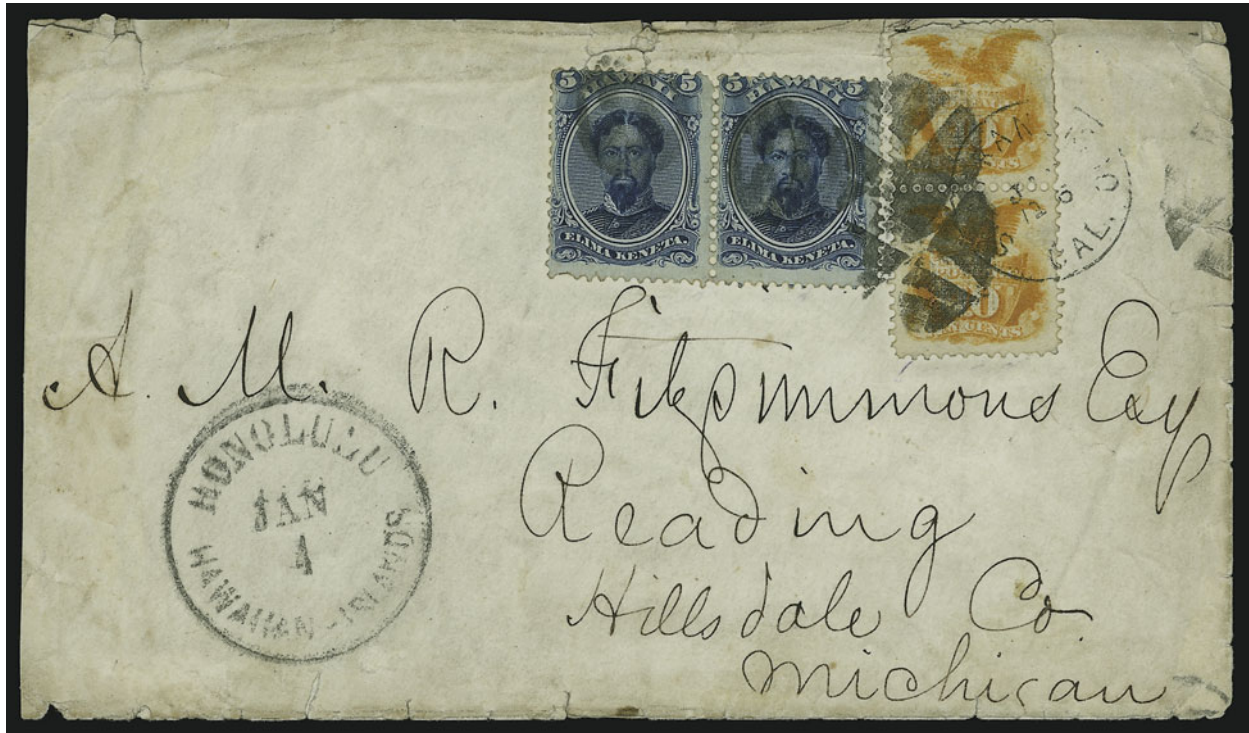 5 HAWAII 5
ELIMA KENETA.
5 HAWAII 5
ELIMA KENETA.
CAL.
CENTS
TEN CENTS
A. M. R. Fitzsimmons Esq
Reading
Hillsdale Co.
Michigan
HONOLULU
JAN
4
HAWAIIAN-ISLANDS